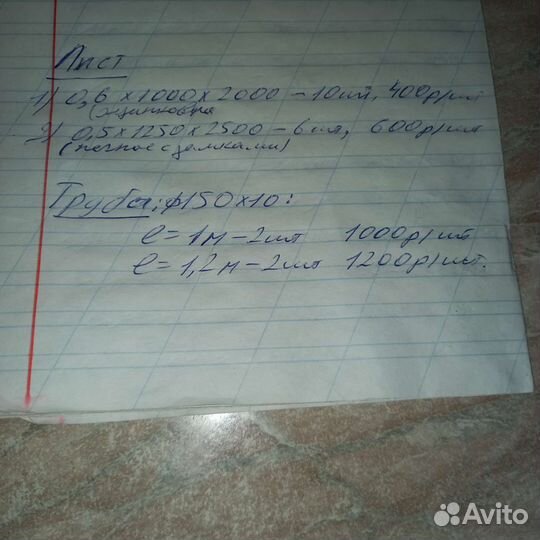 Лист
1) 0,6 х 1000 х 2000 – 10 шт, 400 р/шт
(оцинковка
2) 0,5 х 1250 х 2500 – 6 шт, 600 р/шт
(печное с замками)
Труба: ф150х10:
l = 1м – 2шт 1000р/шт
l = 1,2м – 2шт 1200р/шт.
Avito